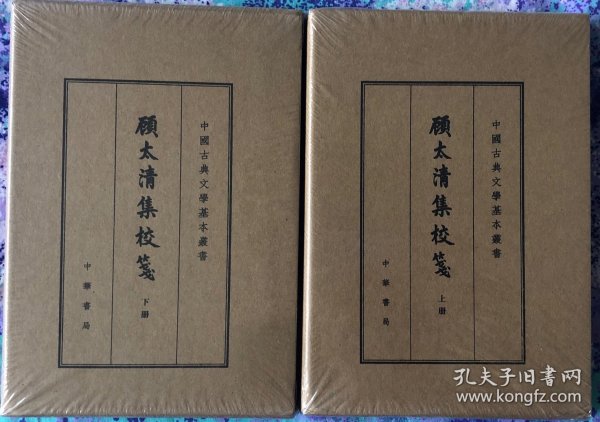 中國古典文學基本叢書
顧太清集校箋
下册
中華書局
中國古典文學基本叢書
顧太清集校箋
上册
中華書局
孔夫子旧書网
www.kongfz.com